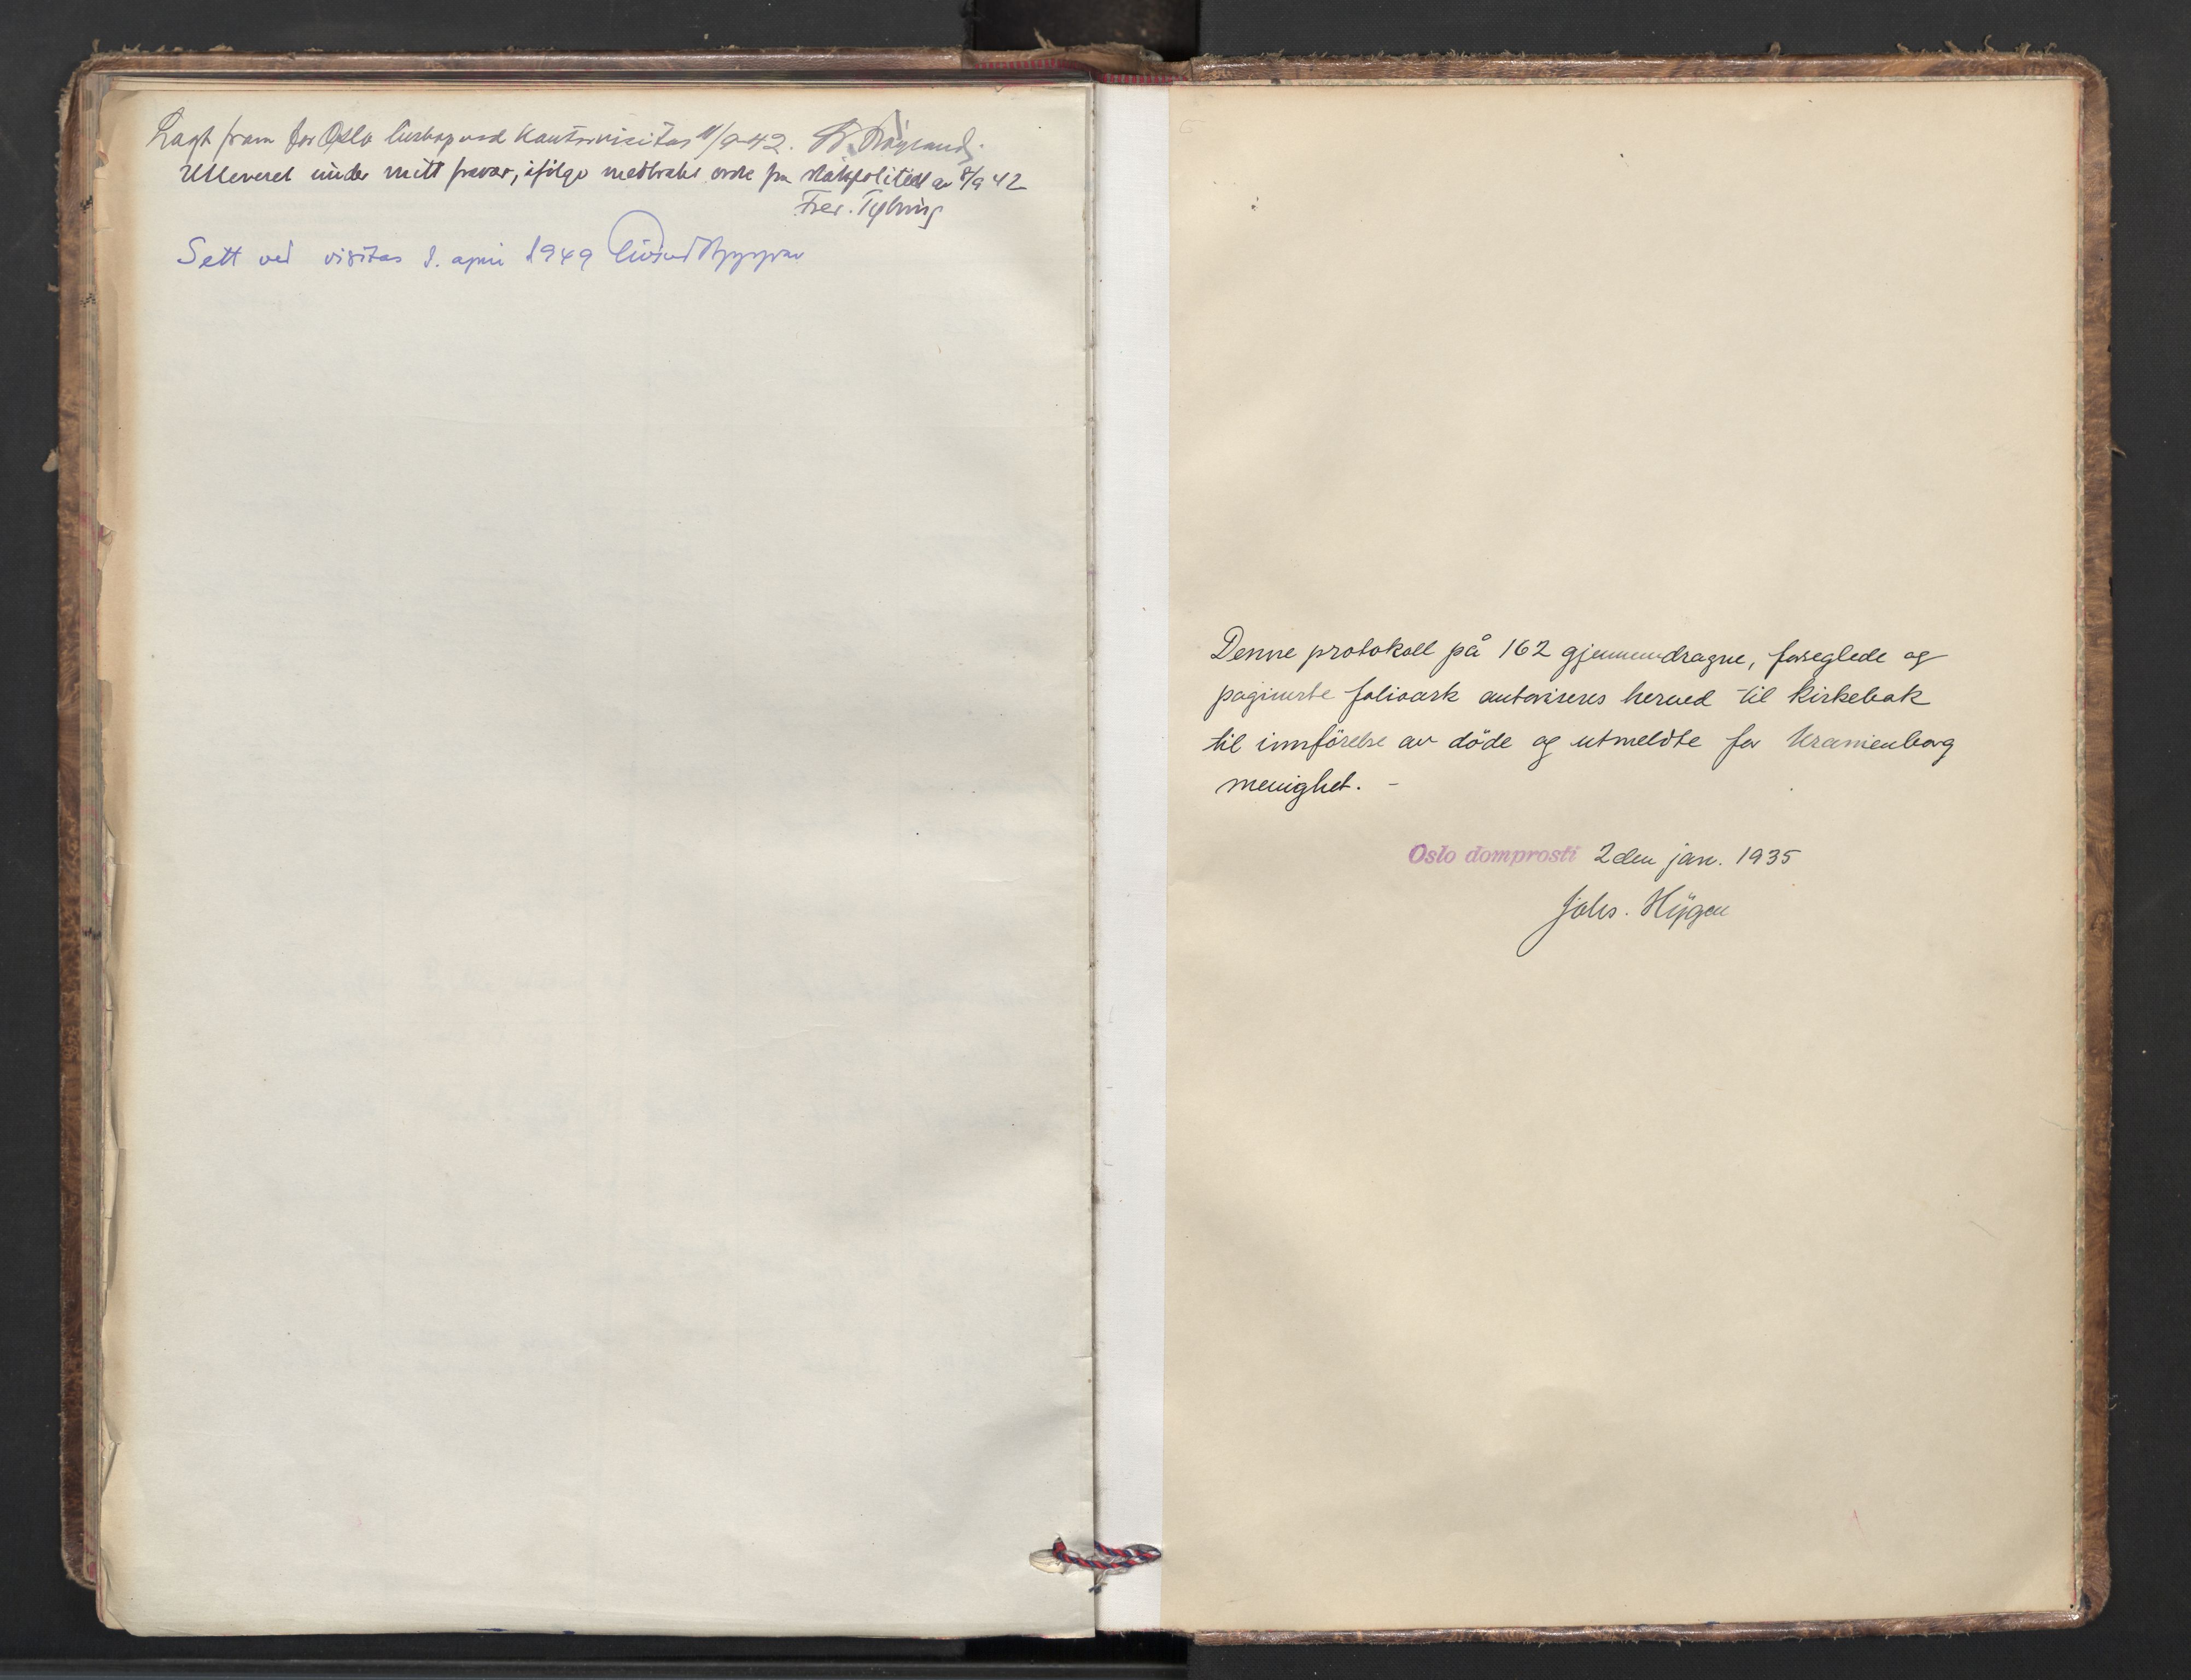 Lagt fram for Oslo biskop ved Kontorvisitas 11/9-42.
Utleveret under mitt fravær, ifölge medbrakt ordre fra statspolitiet av 8/9 42
Fred. Tybring
Sett ved visitas 8. april 1949 Eivind Berggrav
Denne protokoll på 162 gjennemdragne, forseglede og
paginerte folioark autoriseres herved til kirkebok
til innförelse av döde og utmeldte for Uranienborg
menighet. -
Oslo domprosti 2den jan. 1935
Johs. Hygen